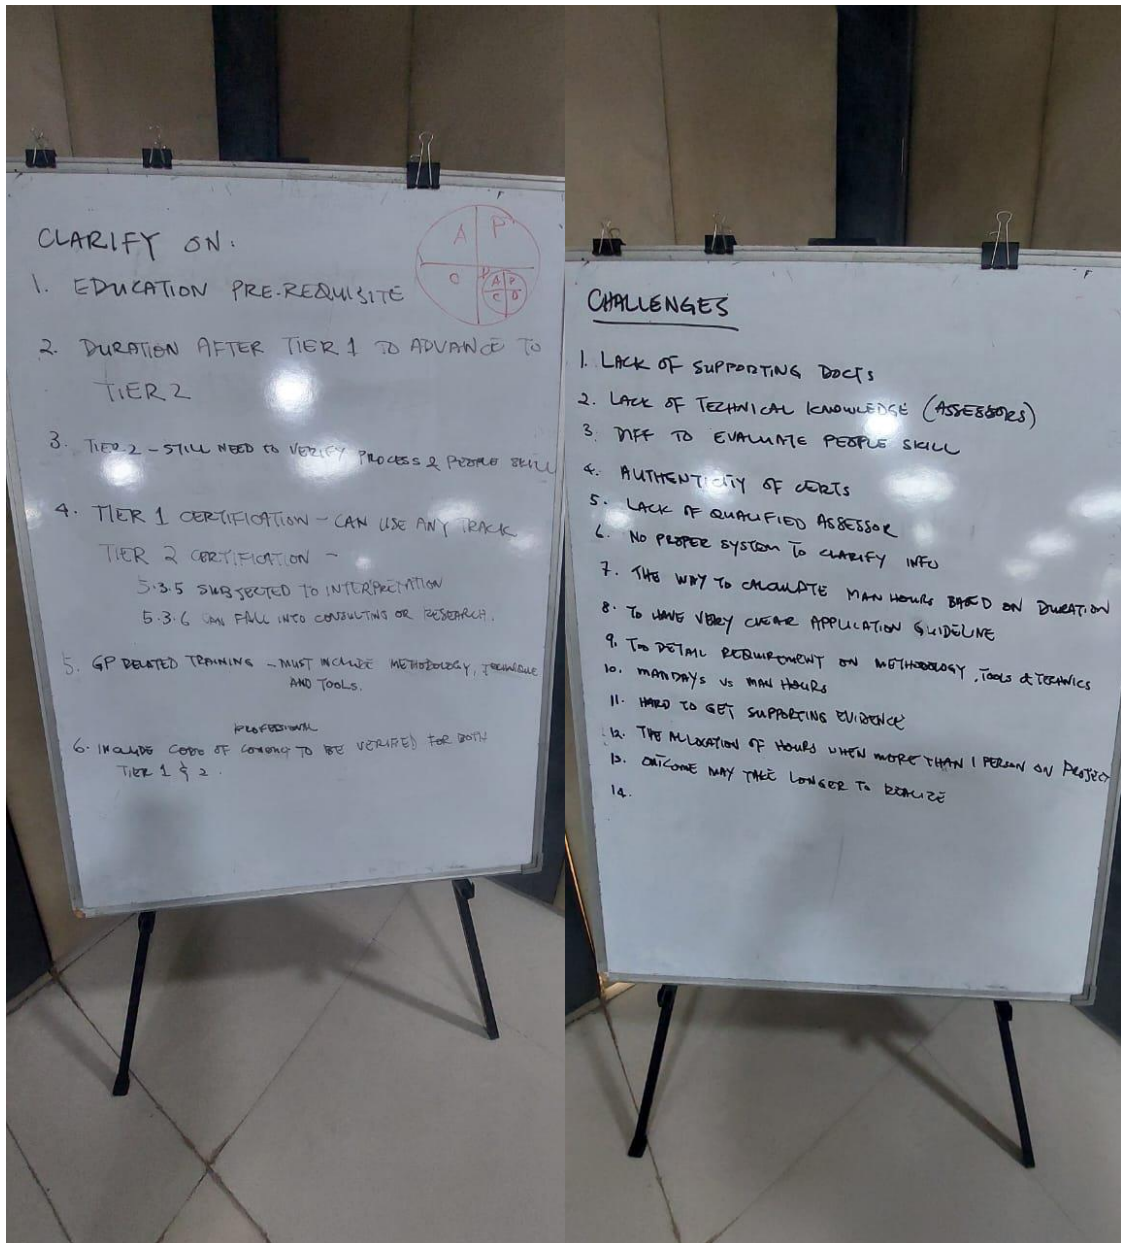 CLARIFY ON:
1. EDUCATION PRE-REQUISITE
2. DURATION AFTER TIER 1 TO ADVANCE TO
TIER 2
3. TIER 2 - STILL NEED TO VERIFY PROCESS & PEOPLE SKILL
4. TIER 1 CERTIFICATION - CAN USE ANY TRACK
TIER 2 CERTIFICATION -
5.3.5 SUBJECTED TO INTERPRETATION
5.3.6 CAN FALL INTO CONSULTING OR RESEARCH.
5. GP RELATED TRAINING - MUST INCLUDE METHODOLOGY, TECHNIQUE
AND TOOLS.
PROFESSIONAL
6. INCLUDE CODE OF TO BE VERIFIED FOR BOTH
TIER 1 & 2.
A P
C P
A P
C D
CHALLENGES
1. LACK OF SUPPORTING DOCTS
2. LACK OF TECHNICAL KNOWLEDGE (ASSESSORS)
3. DIFF TO EVALUATE PEOPLE SKILL
4. AUTHENTICITY OF CERTS
5. LACK OF QUALIFIED ASSESSOR
6. NO PROPER SYSTEM TO CLARIFY INFO
7. THE WAY TO CALCULATE MAN HOURS BASED ON DURATION
8. TO HAVE VERY CLEAR APPLICATION GUIDELINE
9. TOO DETAIL REQUIREMENT ON METHODOLOGY, TOOLS & TECHNICS
10. MANDAYS VS MAN HOURS
11. HARD TO GET SUPPORTING EVIDENCE
12. THE ALLOCATION OF HOURS WHEN MORE THAN 1 PERSON ON PROJECT
13. OUTCOME MAY TAKE LONGER TO REALIZE
14.